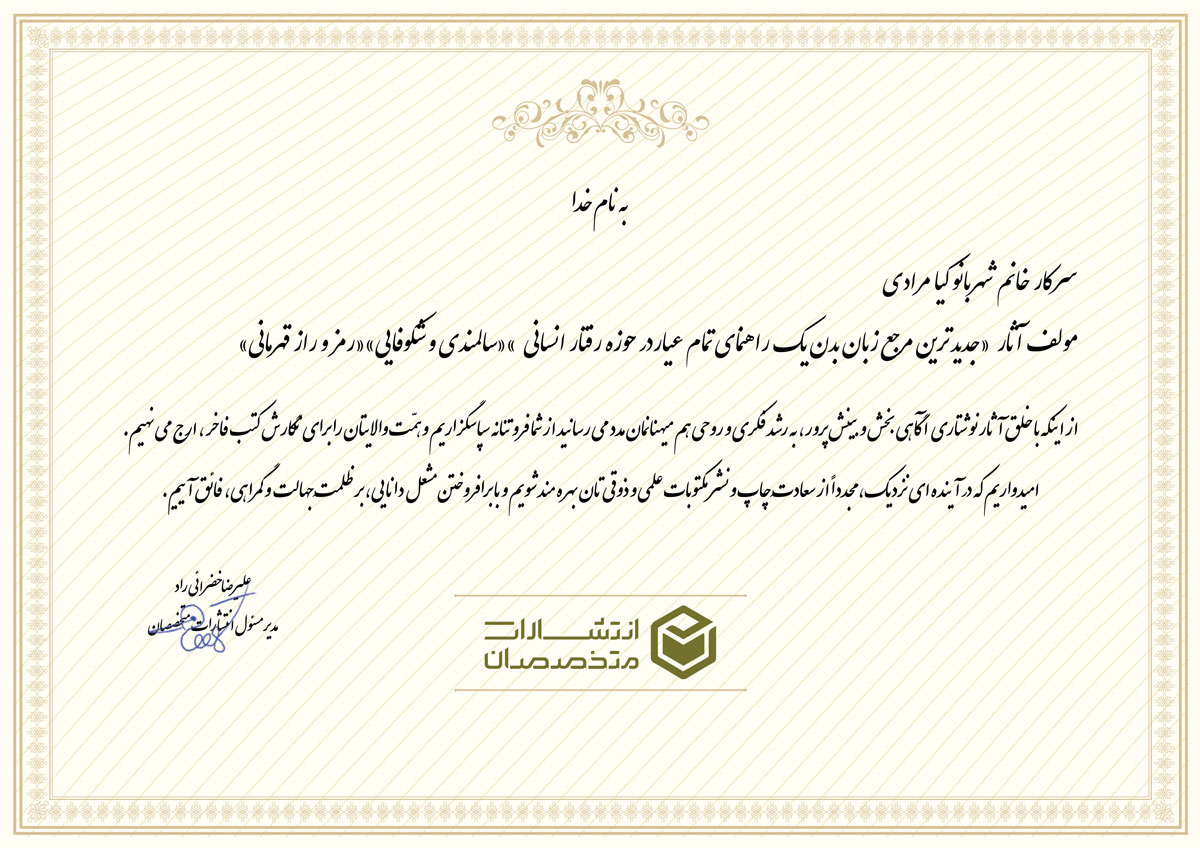 به نام خدا
سرکار خانم شهربانو کیا مرادی
مولف آثار «جدیدترین مرجع زبان بدن یک راهنمای تمام عیار در حوزه رفتار انسانی »«سالمندی و شکوفایی»«رمز و راز قهرمانی»
از اینکه با خلق آثار نوشتاری آگاهی بخش و بینش پرور، به رشد فکری و روحی هم میهنانمان مدد می رسانید از شما فروتنانه سپاسگزاریم و همّت والایتان را برای نگارش کتب فاخر، ارج می نهیم.
امیدواریم که در آینده ای نزدیک، مجدداً از سعادت چاپ و نشر مکتوبات علمی و ذوقی تان بهره مند شویم و با برافروختن مشعل دانایی، بر ظلمت جهالت و گمراهی، فائق آییم.
علیرضا خضرائی راد
مدیر مسئول انتشارات متخصصان
انتشارات
متخصصان